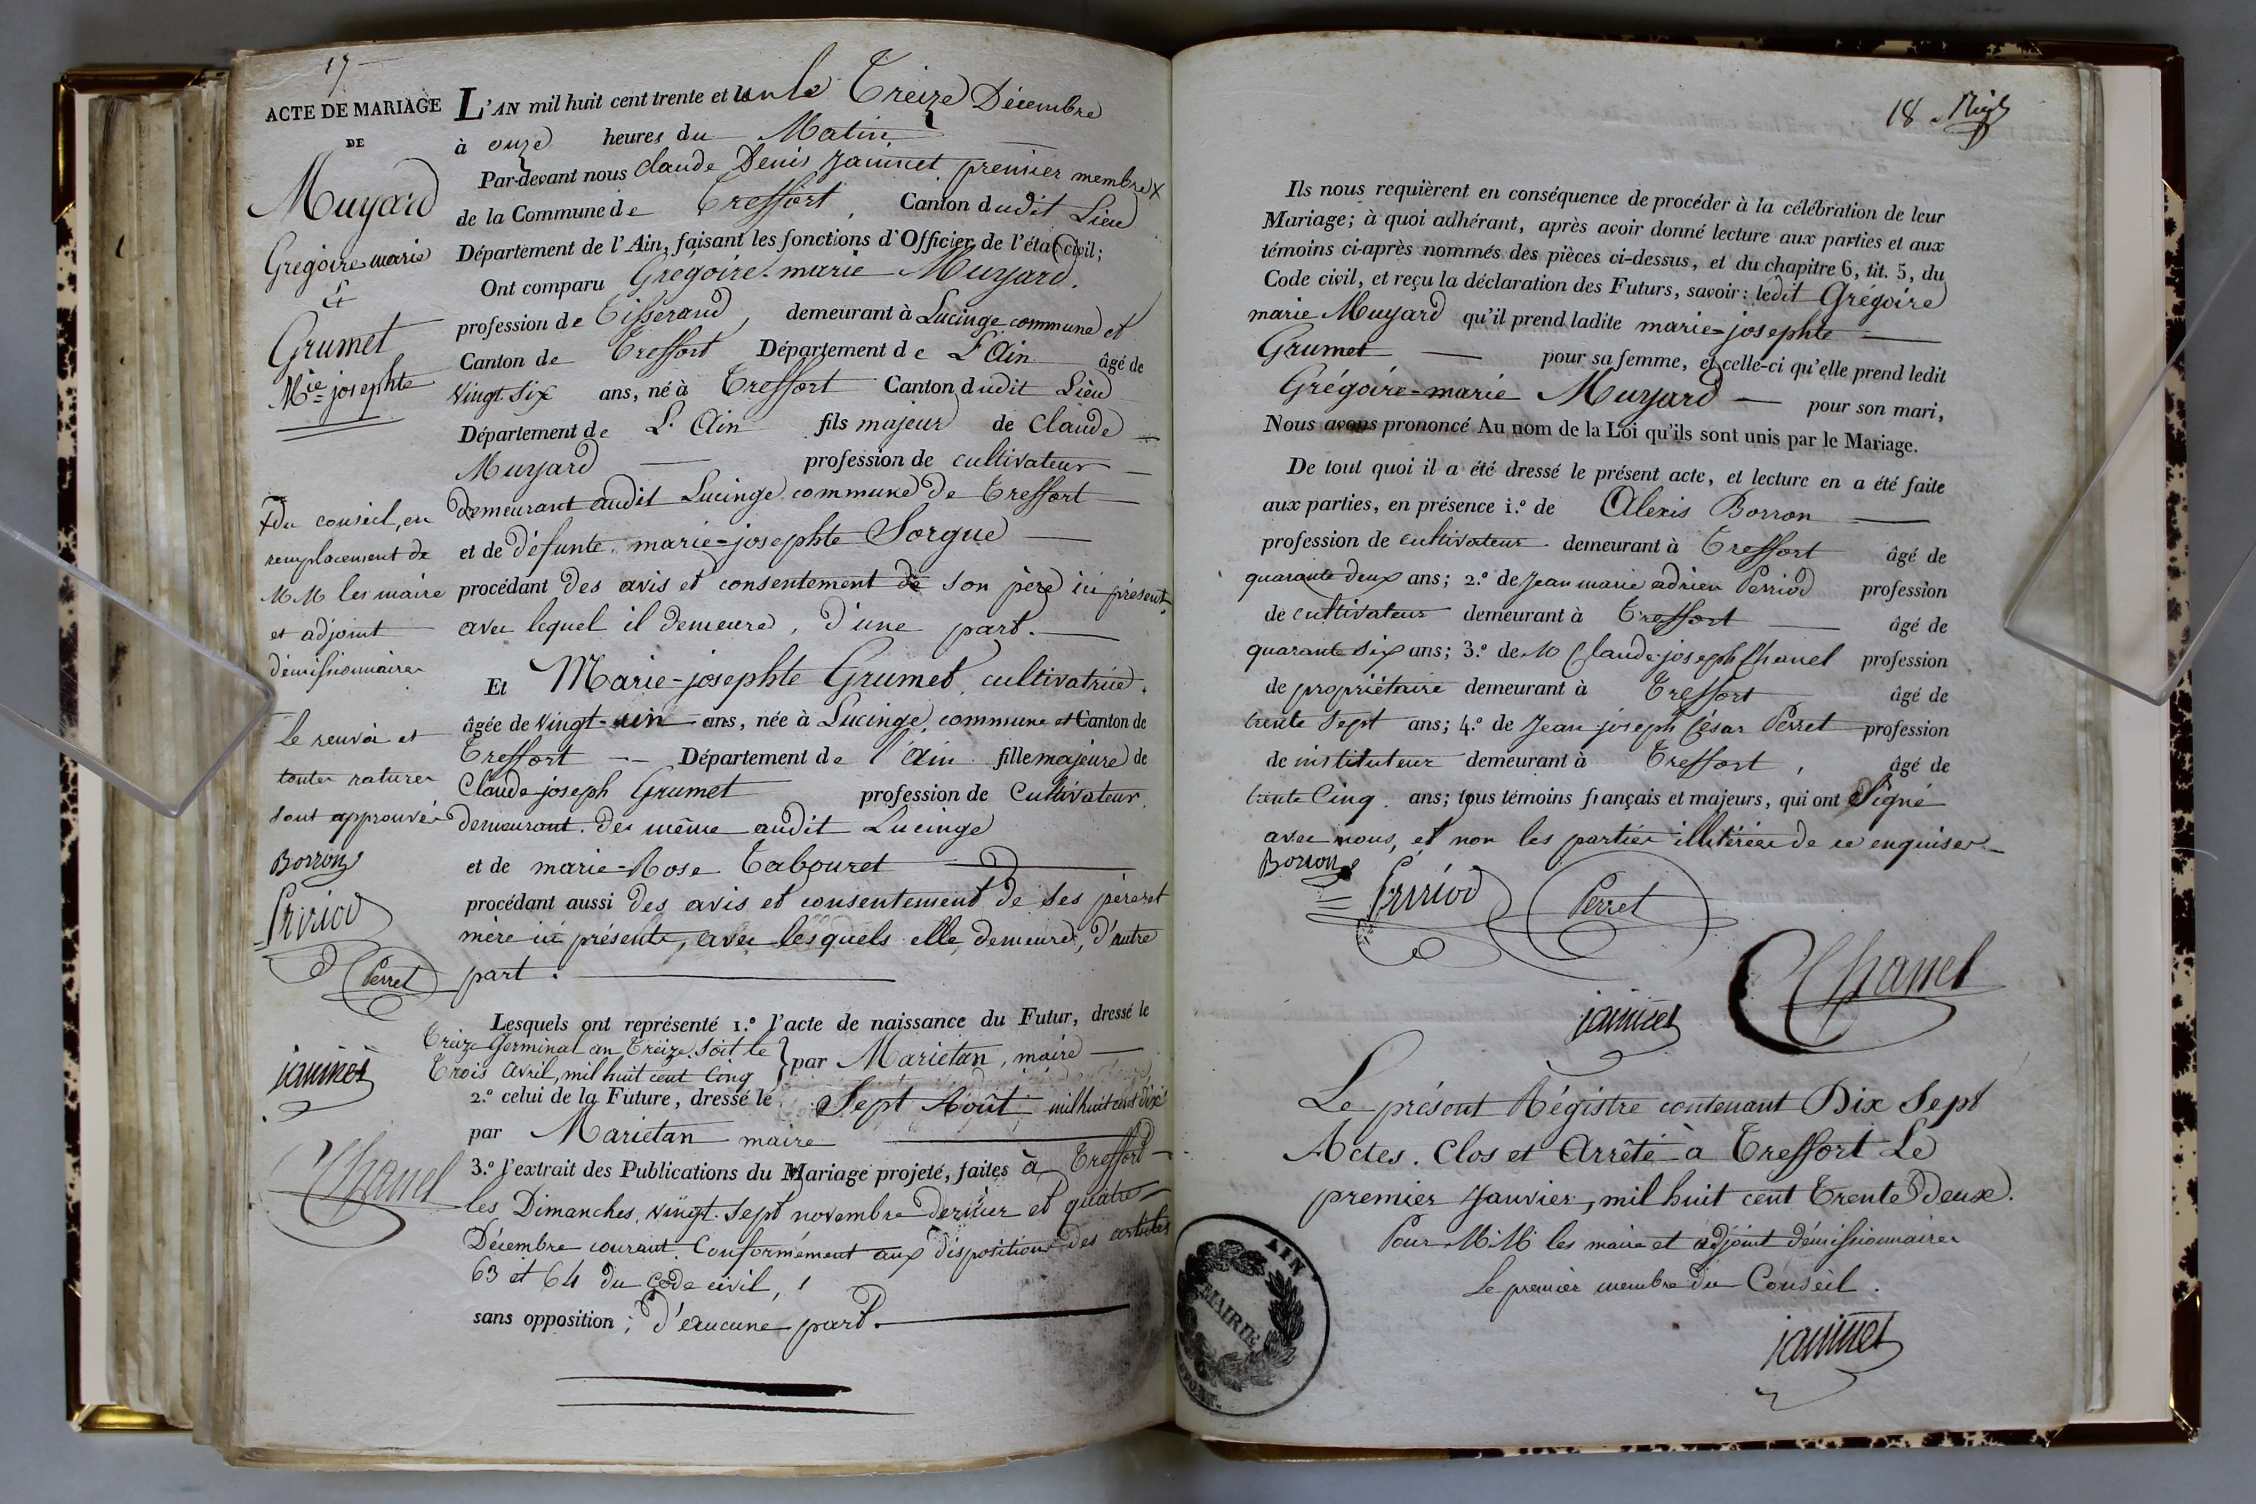 17
ACTE DE MARIAGE
DE
Muyard
Grégoire marie
Et
Grumet
Mie josephte
+ du conseil, en
remplacement de
MM les maire
et adjoint
démissionnaires
le renvoi et
toutes ratures
sont approuvés
Borron
Perriod
Perret
janinet
Chanel
L'AN mil huit cent trente et un le Treize Décembre
à onze heures du Matin
Par-devant nous Claude Denis Janinet premier membre +
de la Commune de Treffort, Canton dudit Lieu
Département de l'Ain, faisant les fonctions d'Officier de l'état civil;
Ont comparu Grégoire-marie Muyard.
profession de Tisserand, demeurant à Lucinge commune et
Canton de Treffort Département de L'Ain âgé de
vingt six ans, né à Treffort Canton dudit Lieu
Département de L'Ain fils majeur de Claude
Muyard profession de cultivateur
demeurant audit Lucinge commune de Treffort
et de défunte marie-josephte Sorgue
procédant des avis et consentement de son père ici présent
avec lequel il demeure, d'une part.
Et Marie-josephte Grumet, cultivatrice,
âgée de vingt-un ans, née à Lucinge, commune et Canton de
Treffort Département de l'Ain fille majeure de
Claude-joseph Grumet profession de Cultivateur,
demeurant de même audit Lucinge
et de marie-Rose Tabouret
procédant aussi des avis et consentement de ses père et
mère ici présents, avec lesquels elle demeure, d'autre
part.
Lesquels ont représenté 1.º l'acte de naissance du Futur, dressé le
Treize Germinal an Treize, soit le
Trois avril, mil huit cent Cinq } par Mariétan, maire
2.º celui de la Future, dressé le Sept Août, mil huit cent dix
par Mariétan maire
3.º l'extrait des Publications du Mariage projeté, faites à Treffort
les Dimanches, vingt-sept novembre dernier et quatre
Décembre courant. Conformément aux dispositions des articles
63 et 64 du Code civil,
sans opposition; d'aucune part.
18
Ils nous requièrent en conséquence de procéder à la célébration de leur
Mariage; à quoi adhérant, après avoir donné lecture aux parties et aux
témoins ci-après nommés des pièces ci-dessus, et du chapitre 6, tit. 5, du
Code civil, et reçu la déclaration des Futurs, savoir: ledit Grégoire
marie Muyard qu'il prend ladite marie-josephte
Grumet pour sa femme, et celle-ci qu'elle prend ledit
Grégoire-marie Muyard pour son mari,
Nous avons prononcé Au nom de la Loi qu'ils sont unis par le Mariage.
De tout quoi il a été dressé le présent acte, et lecture en a été faite
aux parties, en présence 1.º de Alexis Borron
profession de cultivateur demeurant à Treffort âgé de
quarante deux ans; 2.º de Jean marie adrien Perriod profession
de cultivateur demeurant à Treffort âgé de
quarante six ans; 3.º de M Claude-joseph Chanel profession
de propriétaire demeurant à Treffort âgé de
trente sept ans; 4.º de Jean-joseph César Perret profession
de instituteur demeurant à Treffort, âgé de
trente Cinq. ans; tous témoins français et majeurs, qui ont Signé
avec nous, et non les parties illitérées de ce enquises
Borron
Perriod
Perret
Chanel
janinet
Le présent Régistre contenant Dix Sept
Actes. Clos et Arrêté à Treffort Le
premier Janvier, mil huit cent Trente Deux.
Pour MM les maire et adjoint démissionnaires
Le premier membre du Conseil.
janinet
AIN
MAIRIE